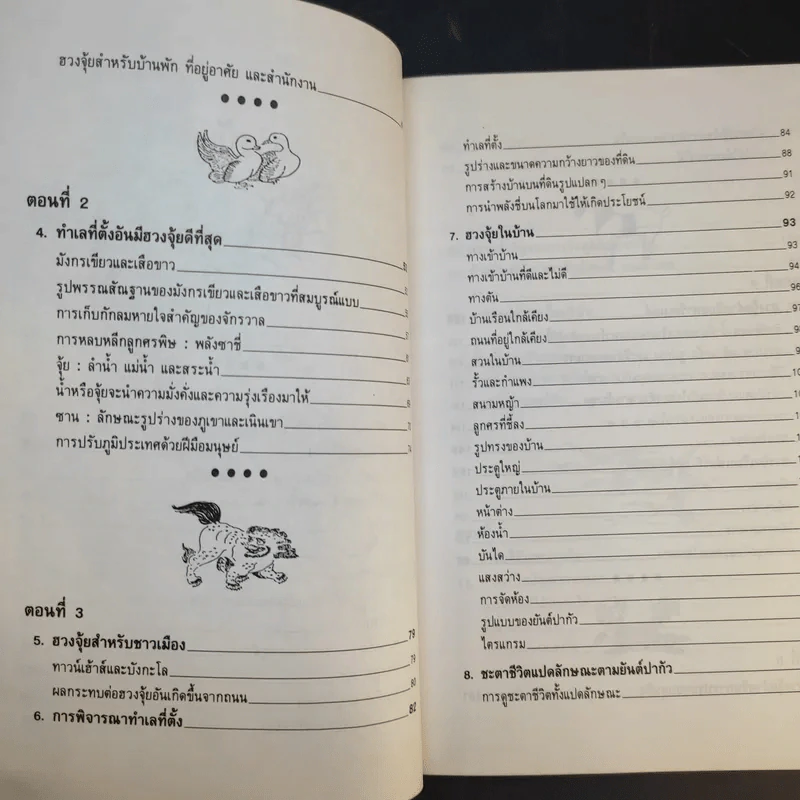 ฮวงจุ้ยสำหรับบ้านพัก ที่อยู่อาศัย และสำนักงาน
ตอนที่ 2
4. ทำเลที่ตั้งอันมีฮวงจุ้ยดีที่สุด
มังกรเขียวและเสือขาว
รูปพรรณสัณฐานของมังกรเขียวและเสือขาวที่สมบูรณ์แบบ
การเก็บกักลมหายใจสำคัญของจักรวาล
การหลบหลีกลูกศรพิษ : พลังซาชี่
จุ้ย : ลำน้ำ แม่น้ำ และสระน้ำ
น้ำหรือจุ้ยจะนำความมั่งคั่งและความรุ่งเรืองมาให้
ซาน : ลักษณะรูปร่างของภูเขาและเนินเขา
การปรับภูมิประเทศด้วยฝีมือมนุษย์
ตอนที่ 3
5. ฮวงจุ้ยสำหรับชาวเมือง 79
ทาวน์เฮ้าส์และบังกะโล 79
ผลกระทบต่อฮวงจุ้ยอันเกิดขึ้นจากถนน 80
6. การพิจารณาทำเลที่ตั้ง 82
ทำเลที่ตั้ง 84
รูปร่างและขนาดความกว้างยาวของที่ดิน 88
การสร้างบ้านบนที่ดินรูปแปลก ๆ 91
การนำพลังชี่บนโลกมาใช้ให้เกิดประโยชน์ 92
7. ฮวงจุ้ยในบ้าน 93
ทางเข้าบ้าน 93
ทางเข้าบ้านที่ดีและไม่ดี 94
ทางตัน 96
บ้านเรือนใกล้เคียง 97
ถนนที่อยู่ใกล้เคียง
สวนในบ้าน
รั้วและกำแพง
สนามหญ้า
ลูกศรที่ชี้ลง
รูปทรงของบ้าน
ประตูใหญ่
ประตูภายในบ้าน
หน้าต่าง
ห้องน้ำ
บันได
แสงสว่าง
การจัดห้อง
รูปแบบของยันต์ปากัว
ไตรแกรม
8. ชะตาชีวิตแปดลักษณะตามยันต์ปากัว
การดูชะตาชีวิตทั้งแปดลักษณะ